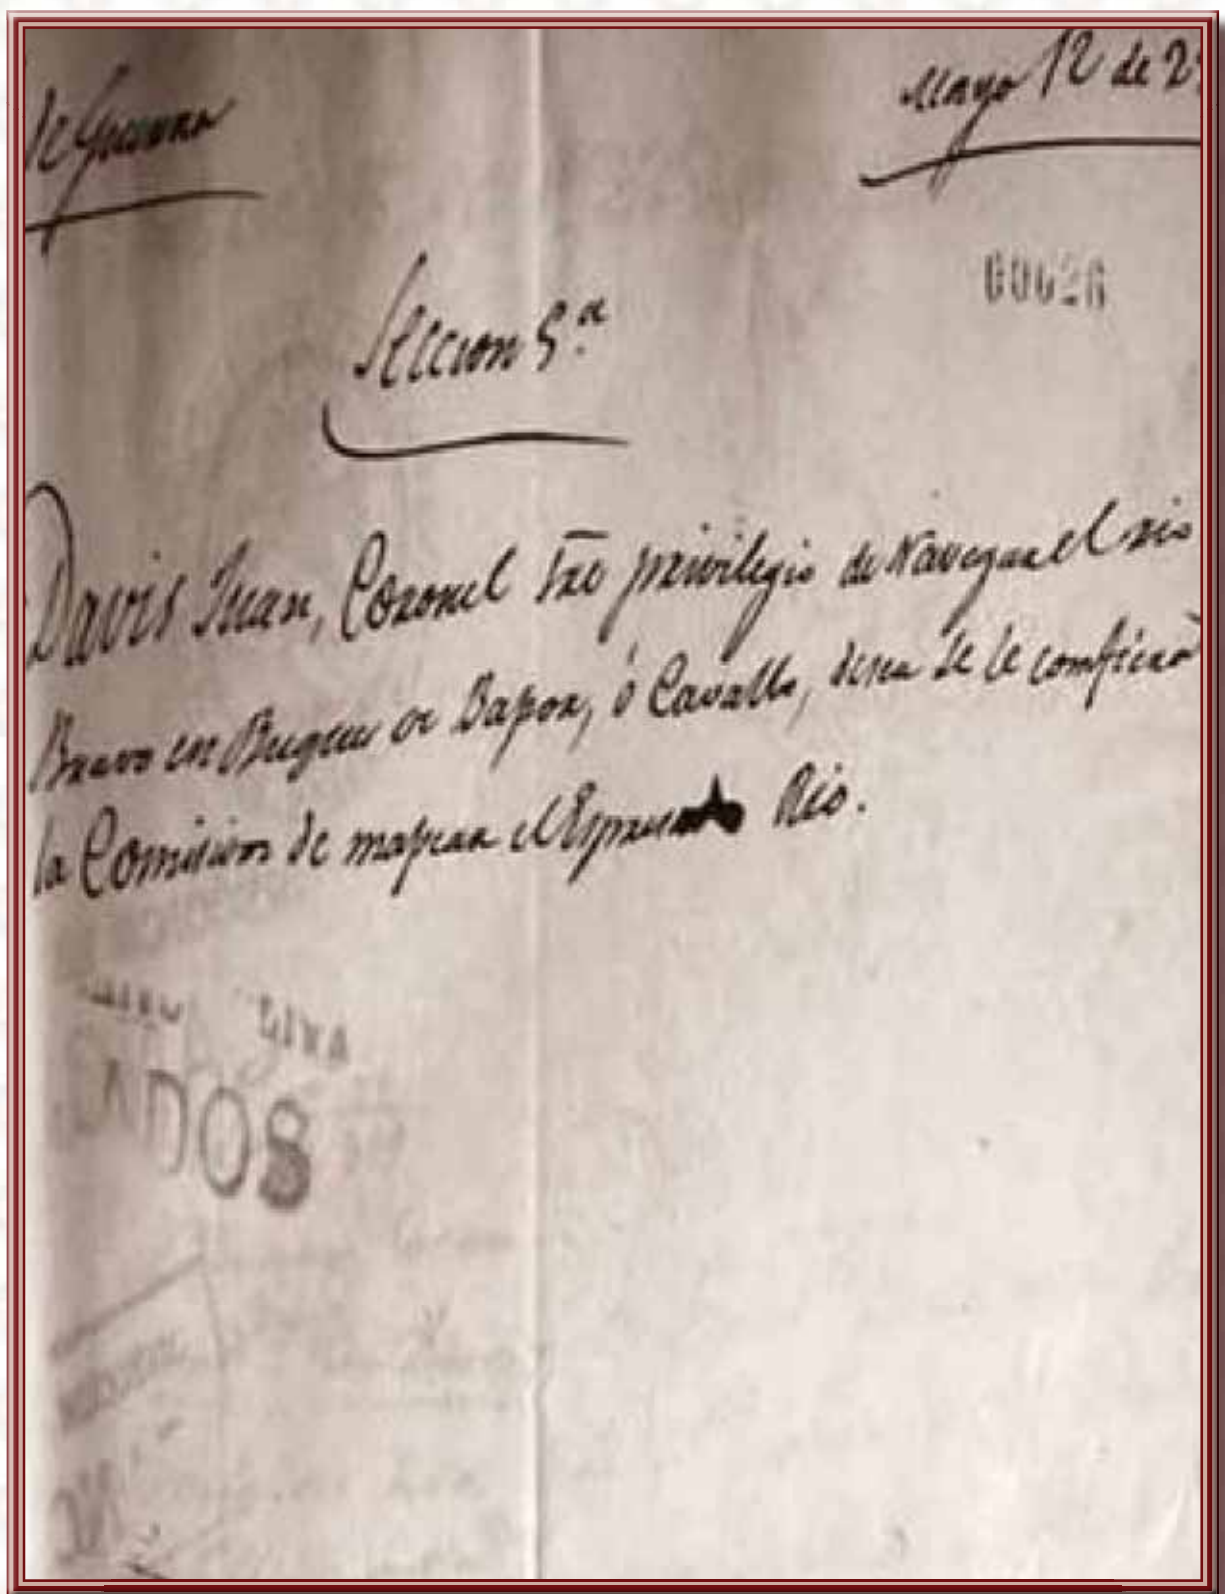 de Guerra
Mayo 12 de 2
Seccion 5.a
Davis Juan, Coronel Tre privilegio de Navegar el rio
Bravo en Buque de Vapor, ó Cavallo, desea se le comfiera
la Comision de mapear el Espresado Rio.
00626
ADOS